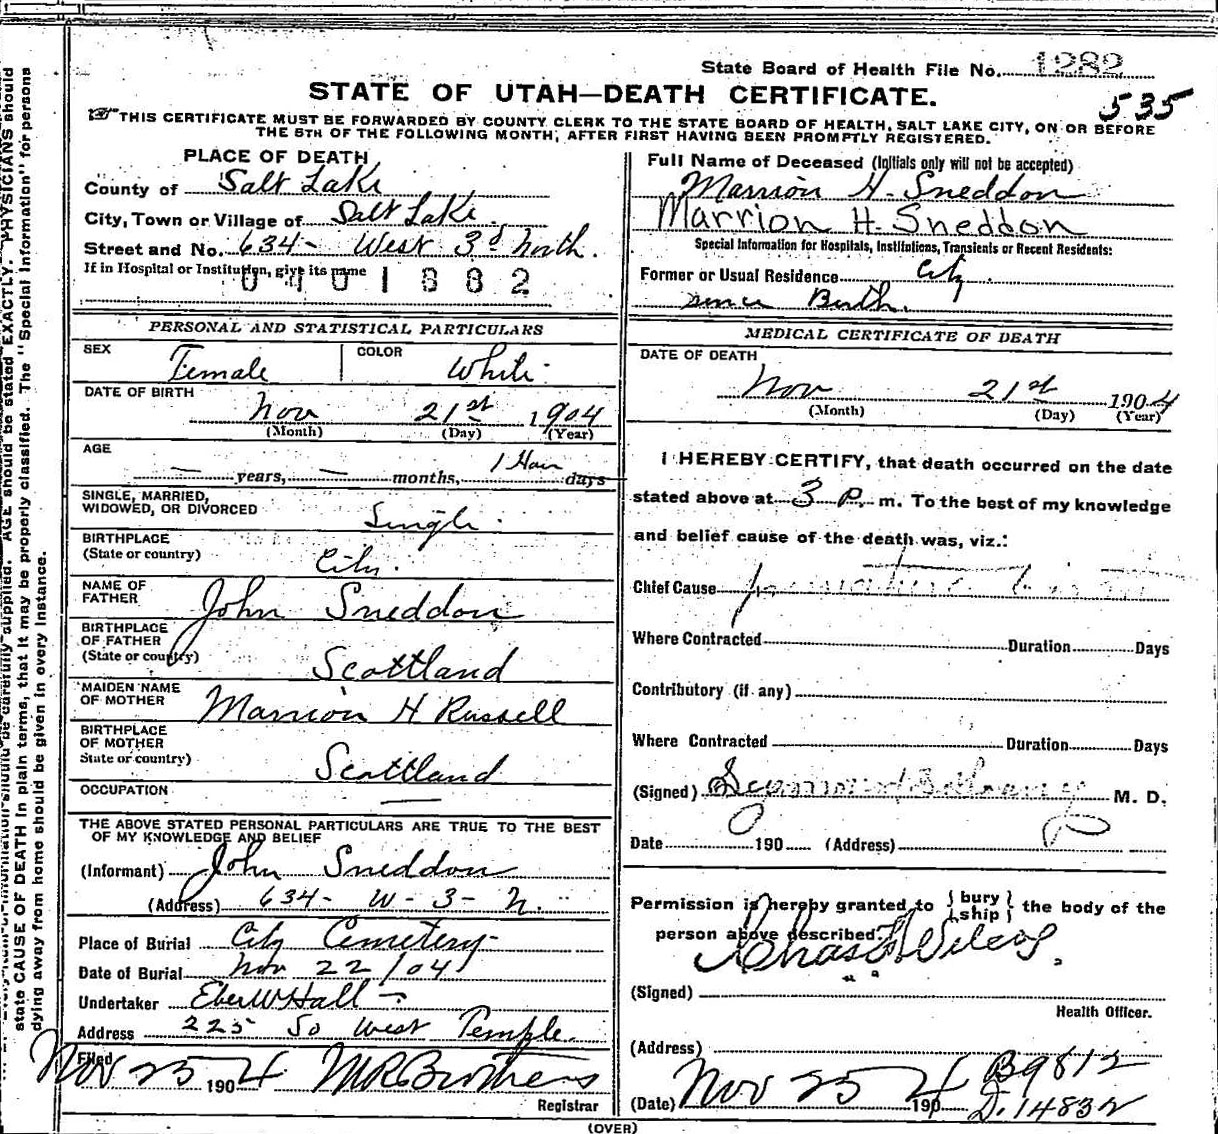 State Board of Health File No. 1282
535
STATE OF UTAH—DEATH CERTIFICATE.
THIS CERTIFICATE MUST BE FORWARDED BY COUNTY CLERK TO THE STATE BOARD OF HEALTH, SALT LAKE CITY, ON OR BEFORE
THE 5TH OF THE FOLLOWING MONTH, AFTER FIRST HAVING BEEN PROMPTLY REGISTERED.
PLACE OF DEATH
County of Salt Lake
City, Town or Village of Salt Lake.
Street and No. 634- West 3d North.
If in Hospital or Institution, give its name
0401882
PERSONAL AND STATISTICAL PARTICULARS
SEX Female COLOR White
DATE OF BIRTH
Nov 21st 1904
(Month) (Day) (Year)
AGE
— years, — months, 1 Hour days
SINGLE, MARRIED,
WIDOWED, OR DIVORCED Single
BIRTHPLACE
(State or country) City.
NAME OF
FATHER John Sneddon
BIRTHPLACE
OF FATHER
(State or country) Scottland
MAIDEN NAME
OF MOTHER Marrion H Russell
BIRTHPLACE
OF MOTHER
State or country) Scottland
OCCUPATION —
THE ABOVE STATED PERSONAL PARTICULARS ARE TRUE TO THE BEST
OF MY KNOWLEDGE AND BELIEF
(Informant) John Sneddon
(Address) 634- W-3-N.
Place of Burial City Cemetery
Date of Burial Nov 22/04
Undertaker Eber W Hall
Address 225 So West Temple.
Filed Nov 25 1904 M R Brothers
Registrar
Full Name of Deceased (Initials only will not be accepted)
Marrion H. Sneddon
Marrion H. Sneddon
Special Information for Hospitals, Institutions, Transients or Recent Residents:
Former or Usual Residence City
since Birth.
MEDICAL CERTIFICATE OF DEATH
DATE OF DEATH
Nov 21st 1904
(Month) (Day) (Year)
I HEREBY CERTIFY, that death occurred on the date
stated above at 3 P. m. To the best of my knowledge
and belief cause of the death was, viz.:
Chief Cause premature birth
Where Contracted Duration Days
Contributory (if any)
Where Contracted Duration Days
(Signed) M. D.
Date 190 (Address)
Permission is hereby granted to {bury
ship} the body of the
person above described.
Chas Wilcox
(Signed)
Health Officer.
(Address)
B9812
(Date) Nov 25 1904 D.14832
(OVER)
state CAUSE OF DEATH in plain terms, that it may be properly classified. The "Special Information" for persons
dying away from home should be given in every instance.